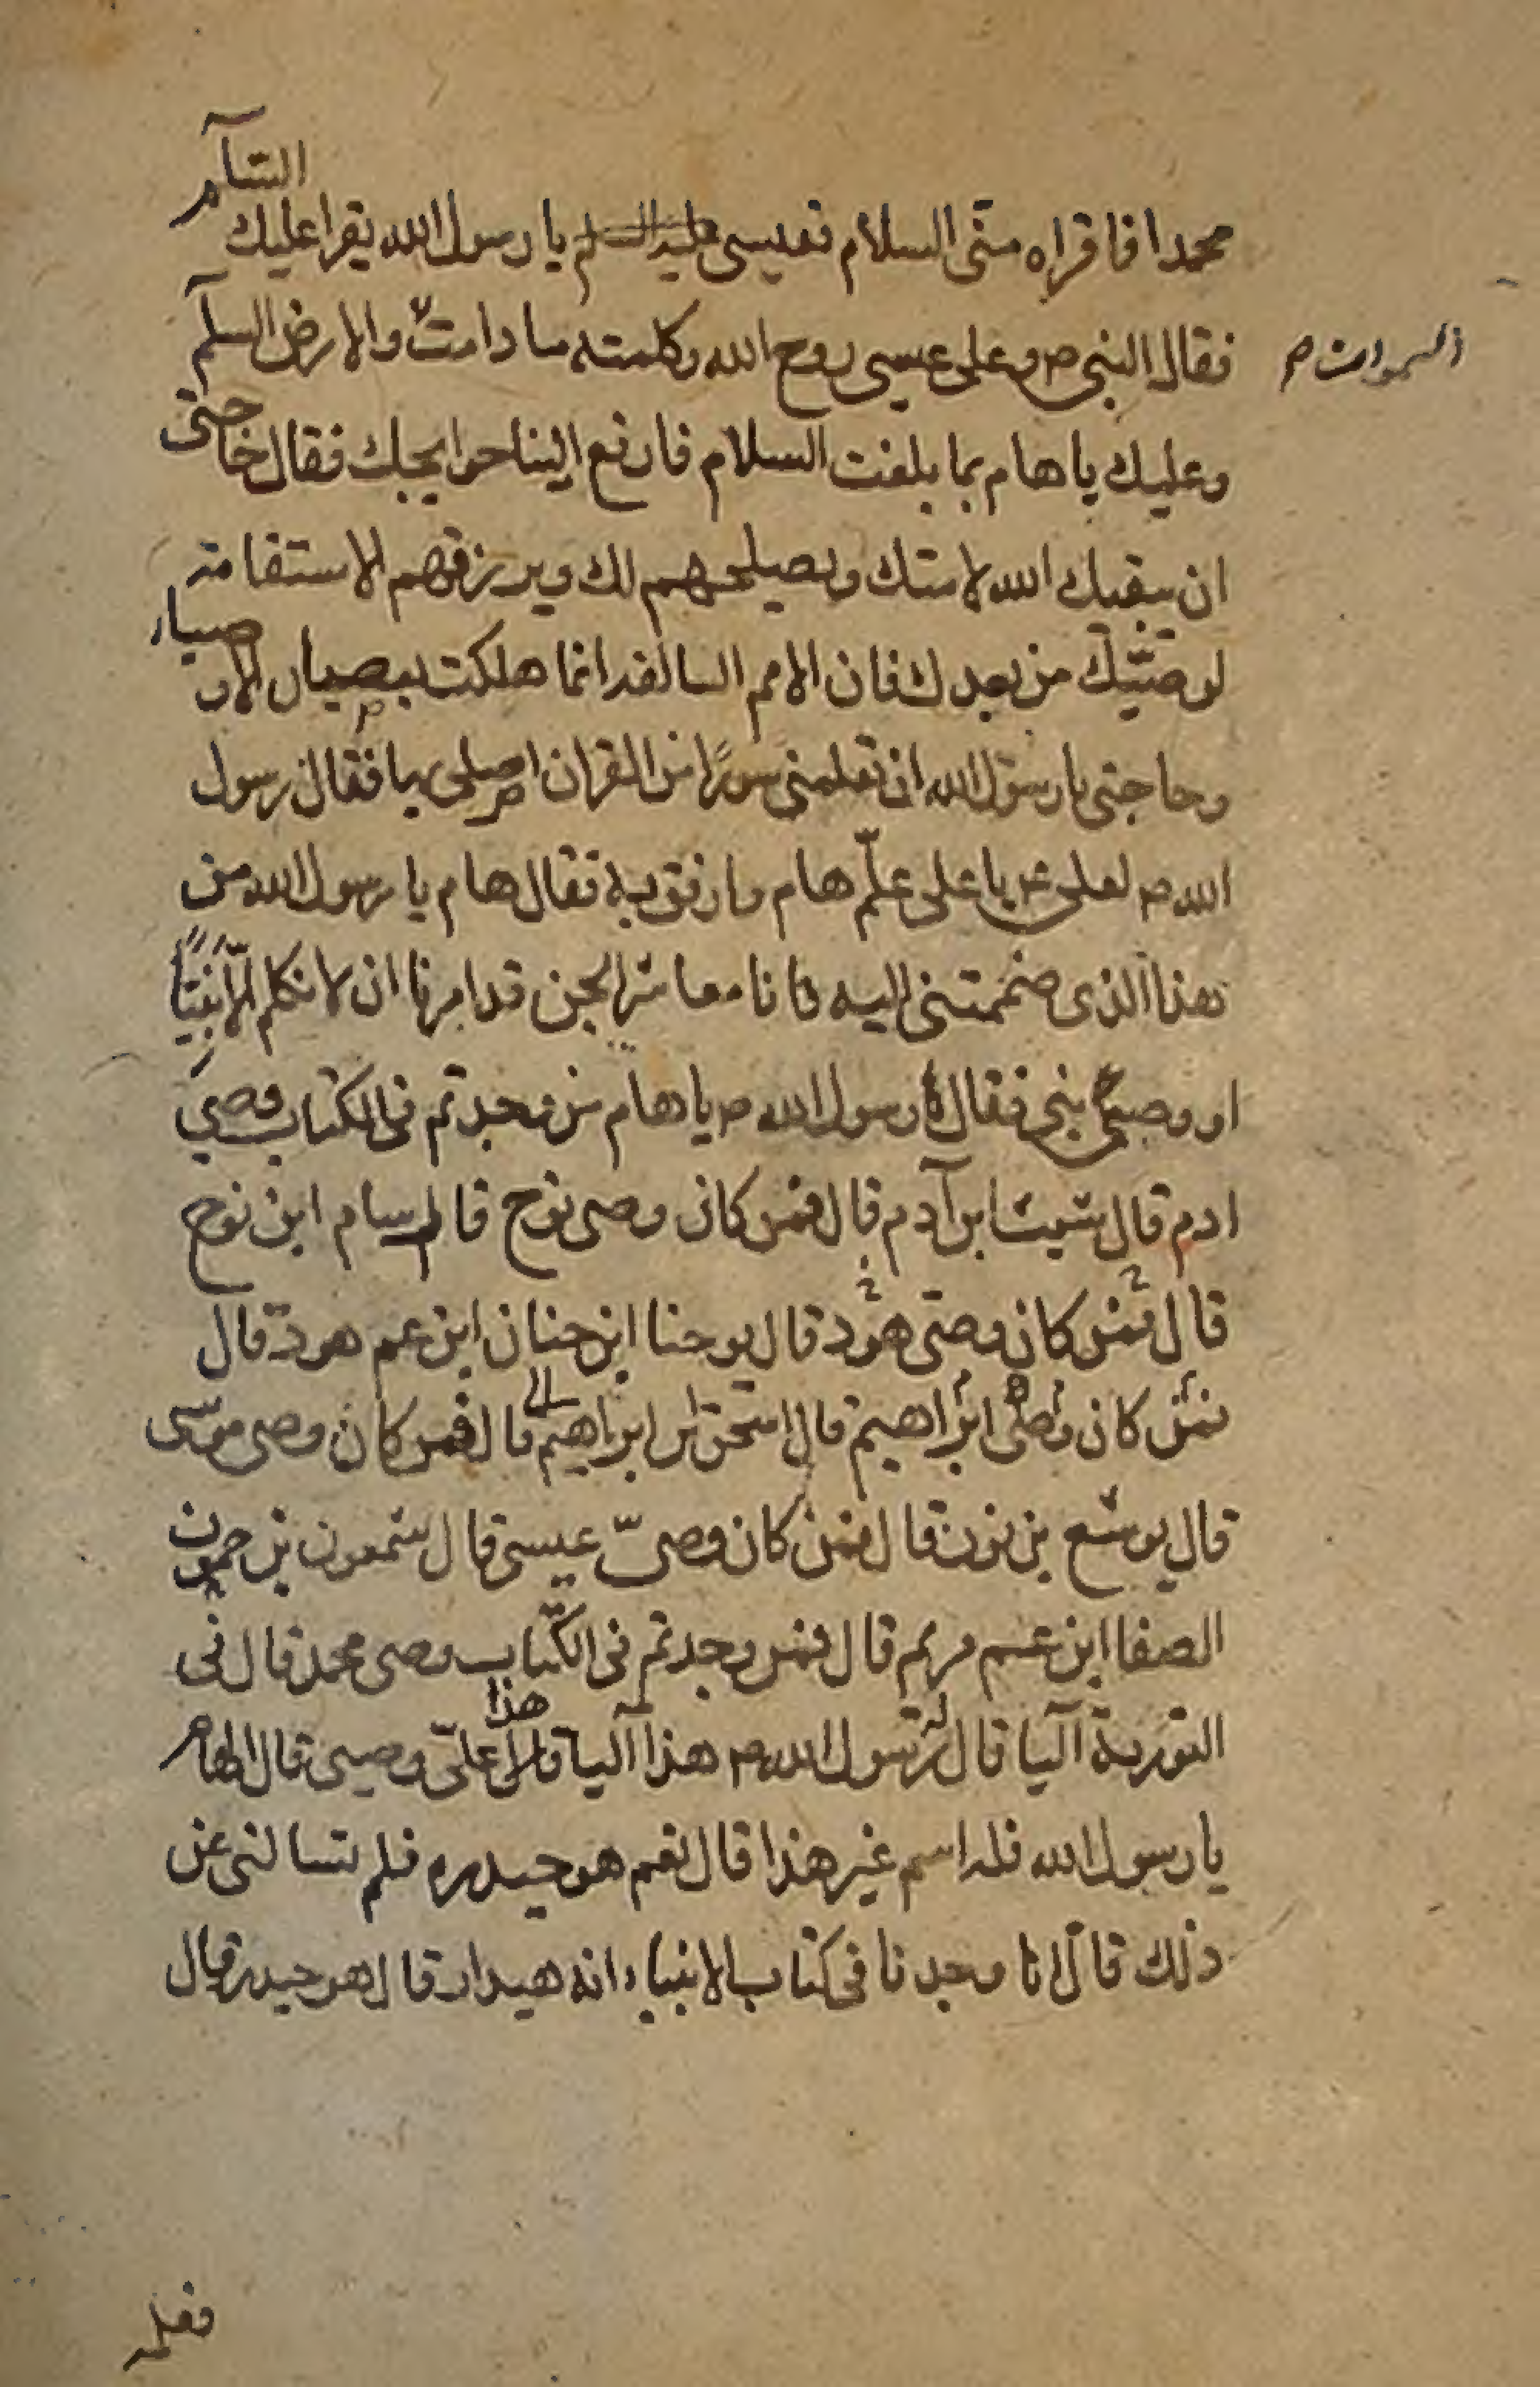 محمدا فاقراه منّى السلام فعيسى عليه السلم يا رسول الله يقرا عليك السّلام
فقال النبى ص وعلى عيسى روح الله وكلمته ما دامت السموات والارض السلم
وعليك يا هام بما بلغت السلام فارفع الينا حوايجك فقال حاجتى
ان يبقيك الله لامتك ويصلحهم لك ويرزقهم الاستقامة
لوصيّك من بعدك فان الامم السالفه انما هلكت بعصيان الاوصياء
وحاجتى يا رسول الله ان تعلمنى سورًا من القران اصلى بها فقال رسول
الله ص لعلى ع يا على علّم هام وارفق به فقال هام يا رسول الله من
هذا الذى ضممتنى اليه فانا معاشر الجن قد امرنا ان لا نكلم الّا نبيًّا
او وصىّ نبى فقال له رسول الله ص يا هام من وجدتم فى الكتاب وصى
ادم قال شيث ابن آدم قال فمن كان وصى نوح قال سام ابن نوح
قال فمن كان وصى هود قال يوحنا ابن حنان ابن عم هود قال
فمن كان وصى ابراهيم قال اسحق ابن ابراهيم قال فمن كان وصى موسى
قال يوشع بن نون قال فمن كان وصىّ عيسى قال شمعون بن حمون
الصفا ابن عم مريم قال فمن وجدتم فى الكتاب وصى محمد قال فى
التورية آليا قال له رسول الله ص هذا آليا هذا علىّ وصيى قال الهام
يا رسول الله فله اسم غير هذا قال نعم هو حيدره فلم تسالنى عن
ذلك قال انا وجدنا فى كتاب الانبياء انه هيدار قال هو حيدرة قال
فعلمه